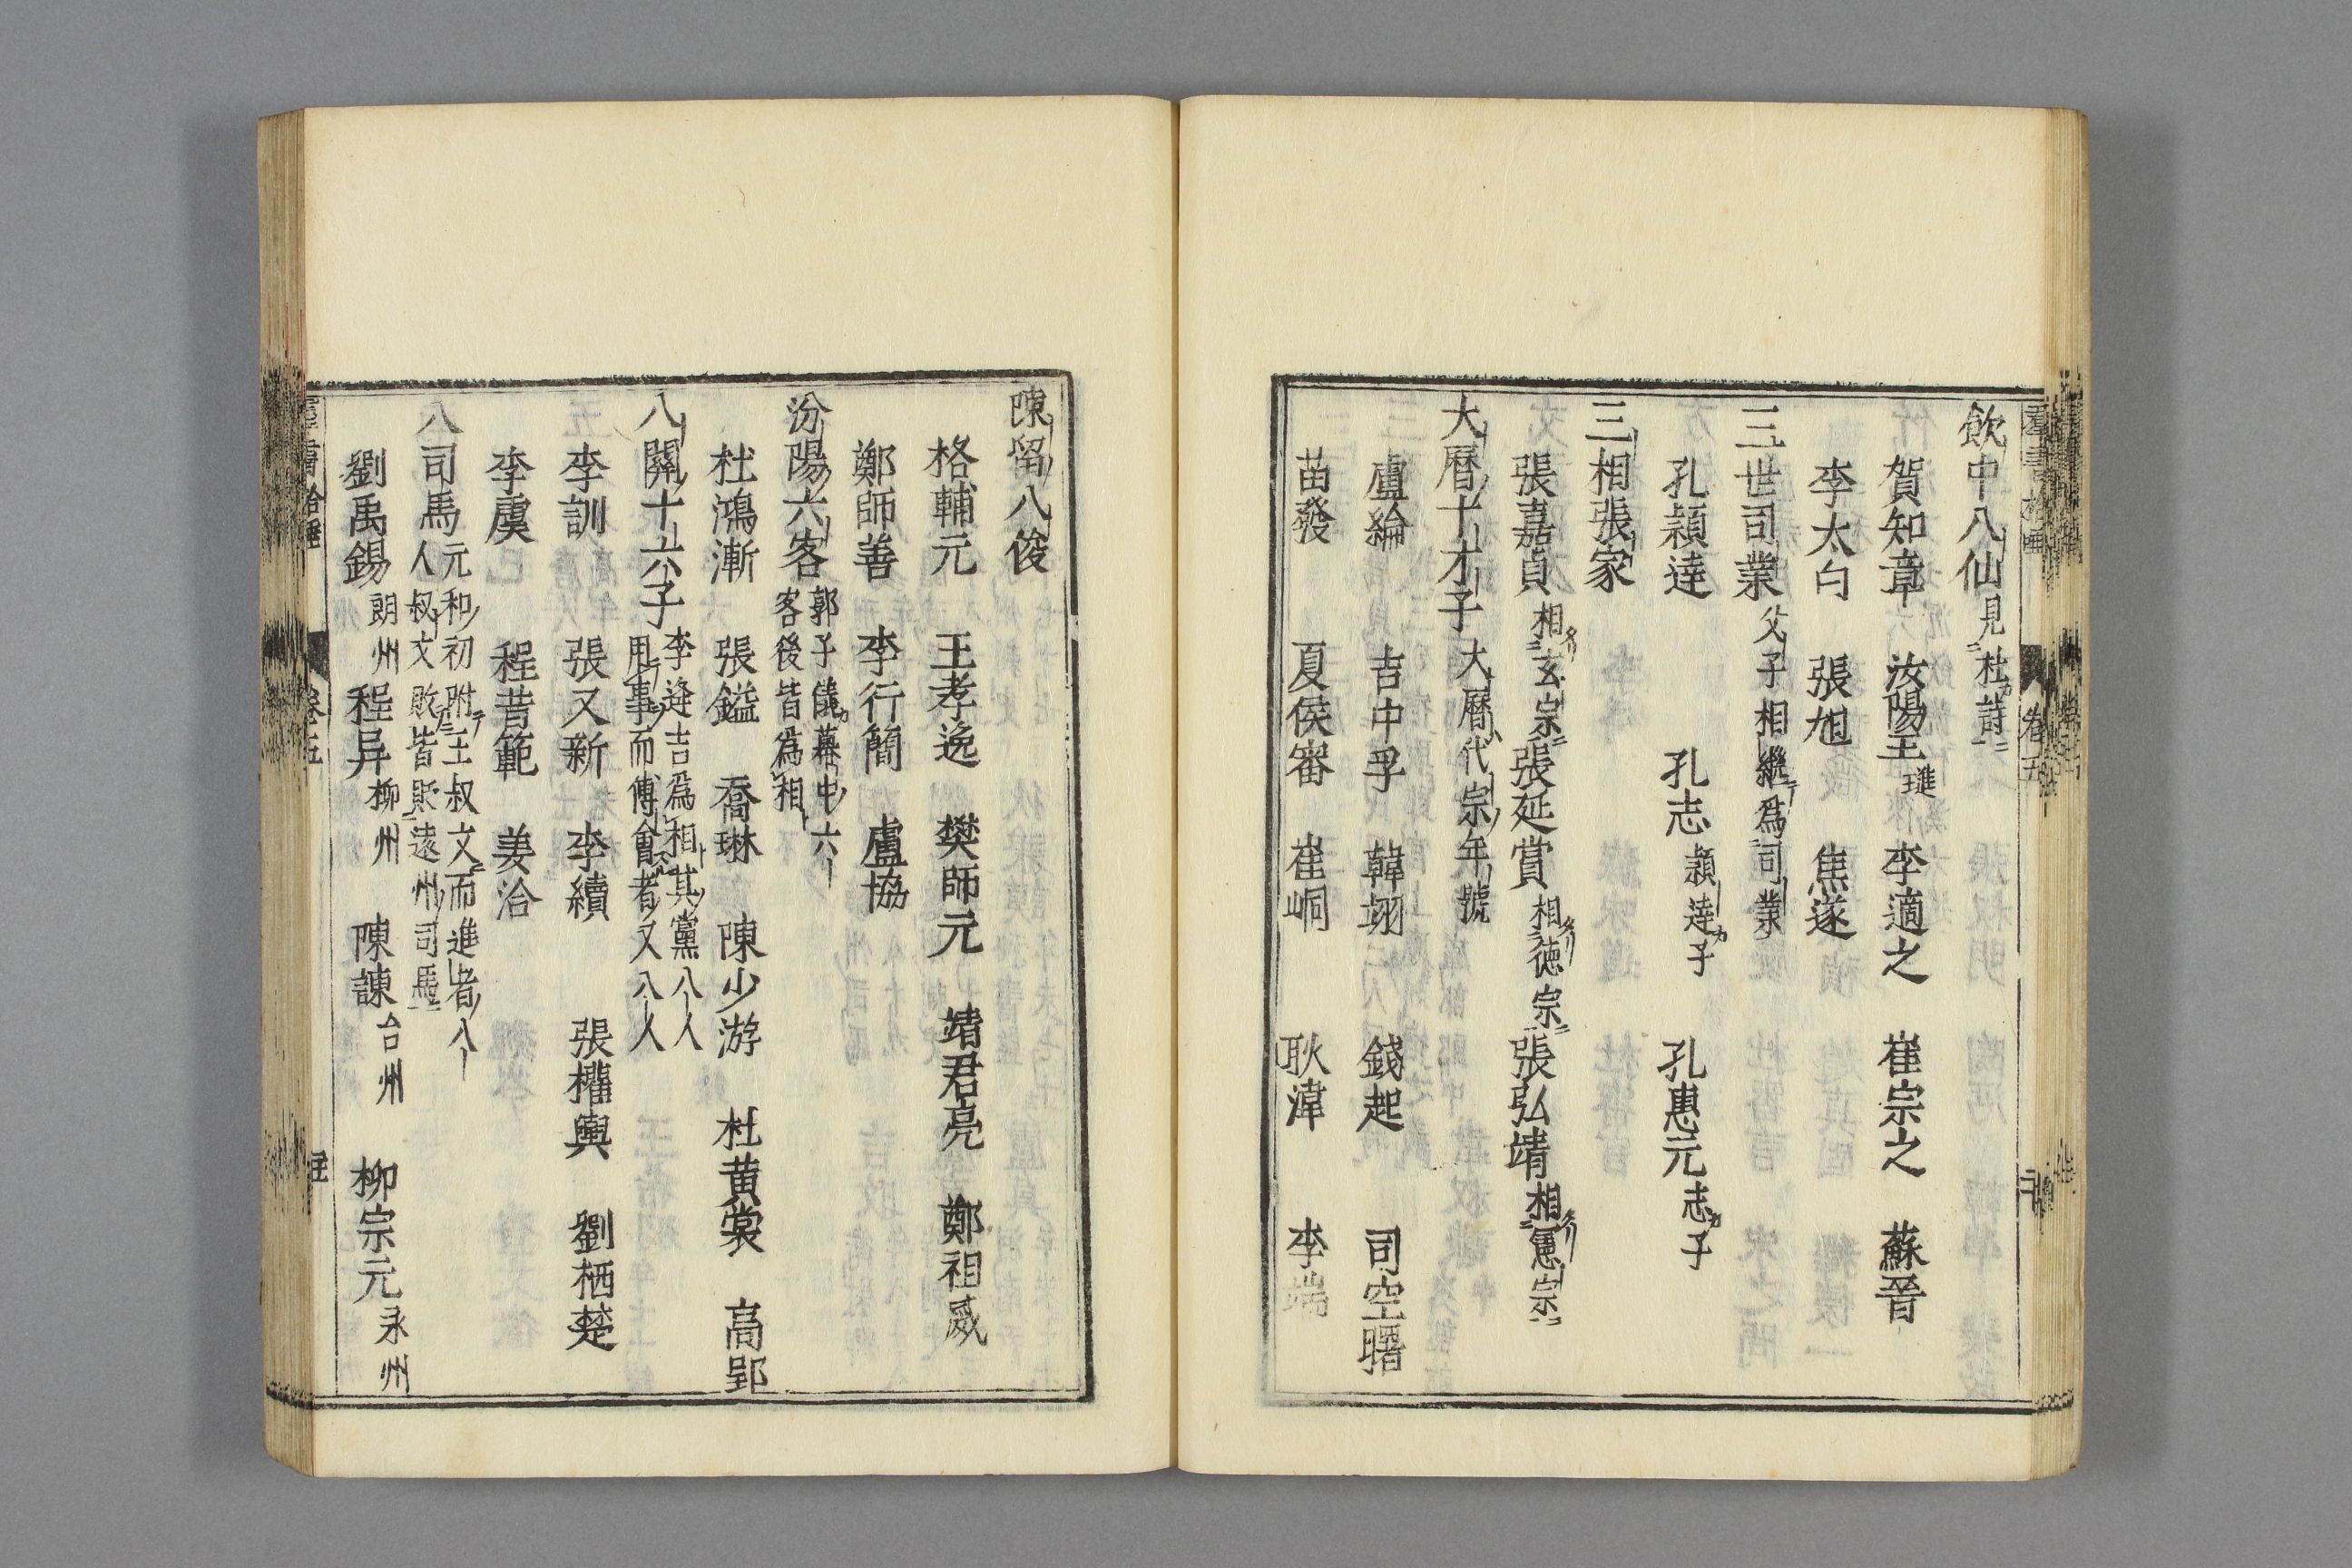 飲中八仙見杜詩
賀知章 汝陽王璡 李適之 崔宗之 蘇晉
李太白 張旭 焦遂
三世司業父子相繼爲司業
孔穎達 孔志穎達子 孔惠元志子
三相張家
張嘉貞相玄宗 張延賞相德宗 張弘靖相憲宗
大曆十才子大曆代宗年號
盧綸 吉中孚 韓翃 錢起 司空曙
苗發 夏侯審 崔峒 耿湋 李端
陳留八俊
格輔元 王孝逸 樊師元 靖君亮 鄭祖咸
鄭師善 李行簡 盧協
汾陽六客郭子儀幕中六客後皆爲相
杜鴻漸 張鎰 喬琳 陳少游 杜黄裳 高郢
八關十六子李逢吉爲相其黨八人用事而傅會者又八人
李訓 張又新 李續 張權輿 劉栖楚
李虞 程昔範 姜洽
八司馬元和初附王叔文而進者八人叔文敗皆貶遠州司馬
劉禹錫朗州 程异柳州 陳諫台州 柳宗元永州